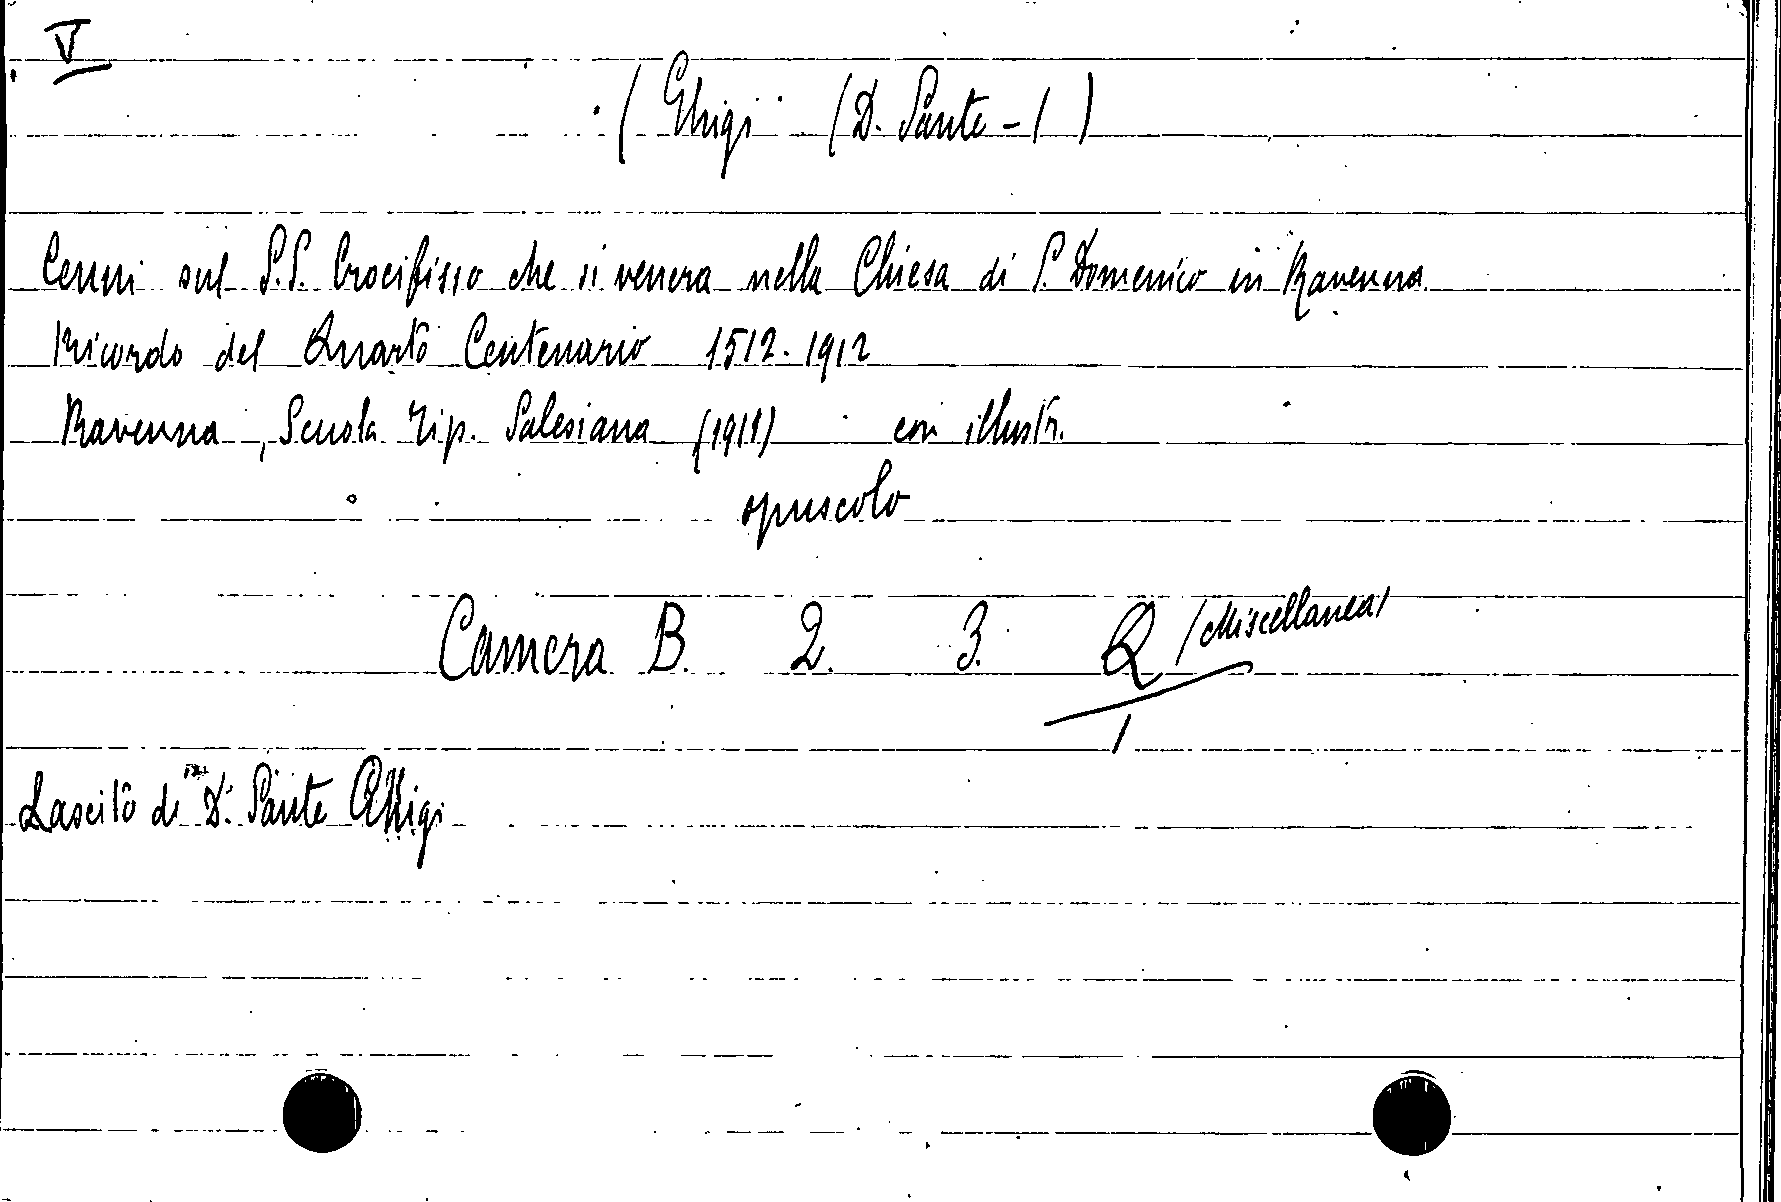 V
( Ghigi (D. Sante - ) )
Cenni sul S.S. Crocifisso che si venera nella Chiesa di S. Domenico in Ravenna
Ricordo del Quarto Centenario 1512-1912
Ravenna, Scuola Tip. Salesiana (1911) con illustr.
opuscolo
Camera B. 2. 3. Q (Miscellanea)
1
Lascito di D. Sante Ghigi